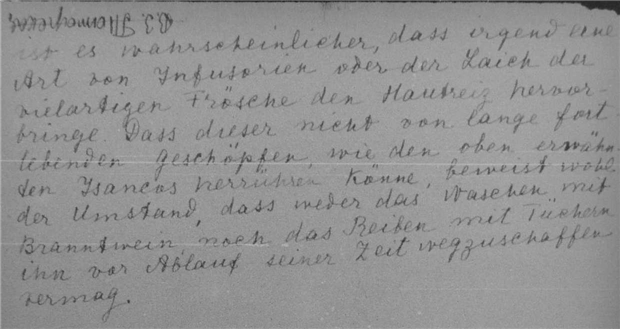 ist es wahrscheinlicher, dass irgend eine
Art von Infusorien oder der Laich der
vielartigen Frösche den Hautreiz hervor-
bringe. Dass dieser nicht von lange fort-
lebenden Geschöpfen, wie den oben erwähn-
ten Isancos herrühren könne, beweist wohl
der Umstand, dass weder das Waschen mit
Branntwein noch das Reiben mit Tüchern
ihn vor Ablauf seiner Zeit wegzuschaffen
vermag.